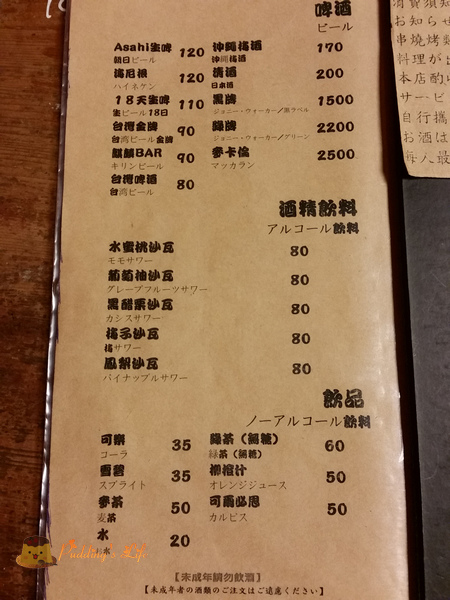 啤酒
ビール
Asahi生啤 120
朝日ビール
海尼根 120
ハイネケン
18天生啤 110
生ビール18日
台灣金牌 90
台湾ビール金牌
麒麟BAR 90
キリンビール
台灣啤酒 80
台湾ビール
沖繩梅酒 170
沖縄梅酒
清酒 200
日本酒
黑牌 1500
ジョニー・ウォーカー/黒ラベル
綠牌 2200
ジョニー・ウォーカー/グリーン
麥卡倫 2500
マッカラン
酒精飲料
アルコール飲料
水蜜桃沙瓦 80
モモサワー
葡萄柚沙瓦 80
グレープフルーツサワー
黑醋栗沙瓦 80
カシスサワー
梅子沙瓦 80
梅サワー
鳳梨沙瓦 80
パイナップルサワー
飲品
ノーアルコール飲料
可樂 35
コーラ
雪碧 35
スプライト
麥茶 50
麦茶
水 20
水
綠茶(無糖) 60
緑茶(無糖)
柳橙汁 50
オレンジジュース
可爾必思 50
カルピス
【未成年請勿飲酒】
【未成年者の酒類のご注文はご遠慮ください】
消費須知
お知らせ
串燒烤類
料理が
本店酌
サービ
自行攜
お酒は
每人最
Pudding's Life